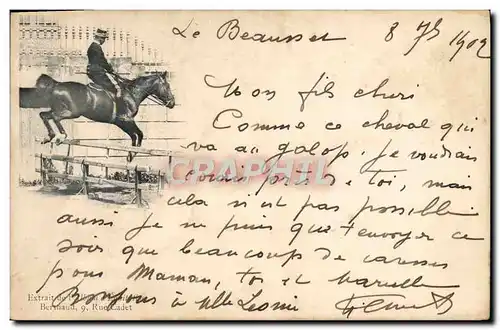 Le Beausset 8 7bre 1902
Mon fils cheri
Comme ce cheval qui
va au galop. Je voudrais
courir près de toi, mais
cela n'est pas possible
aussi je ne puis que t'envoyer ce
soir que beaucoup de caresses
pour Maman, toi et Marcelle
Bonjour à Mlle Leonie
CPRPHIL
Extrait de l'Album
Berthaud, 9, Rue Cadet